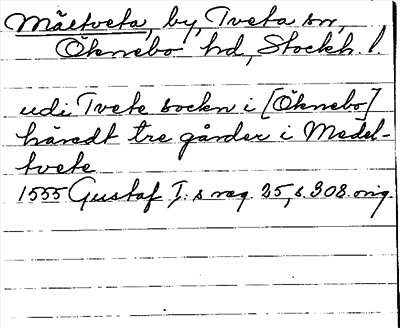 Mältveta, by, Tveta sn,
Öknebo hd, Stockh. l.
udi Tvete sockn i [Öknebo]
häredt tre gårder i Medel-
tvete
1555 Gustaf I:s reg. 25, s. 308. orig.